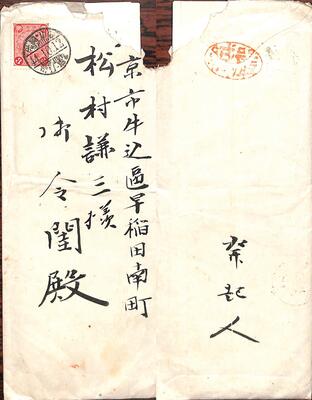 京市牛込區早稲田南町
松村謙三様
御令閨殿
発起人